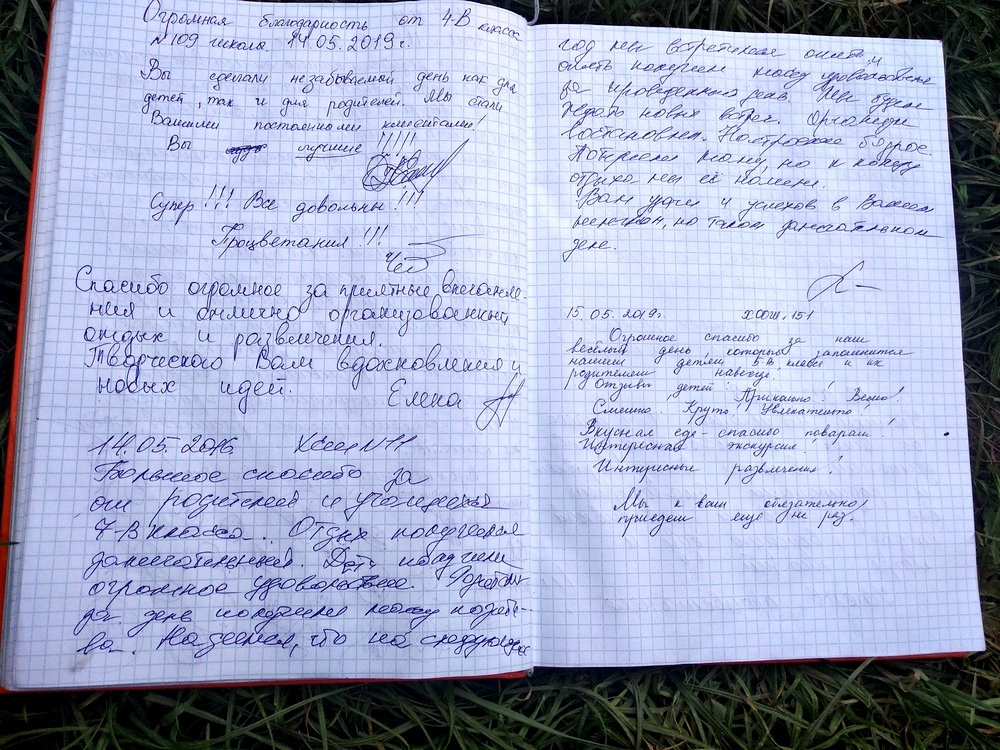 Огромная благодарность от 4-В класса
№109 школа. 14.05.2019г.
Вы сделали незабываемой день как для
детей, так и для родителей. Мы стали
Вашими постоянными клиентами!
Вы лучшие !!!!!
Супер!!! Все довольны!!!
Процветания!!!
Спасибо огромное за приятные впечатле-
ния и отлично организованный
отдых и развлечения.
Творческого Вам вдохновения и
новых идей. Елена
14.05. ХСШ №11
Большое спасибо за
от родителей и учащихся
7-В класса.. Отдых получился
замечательный. Дети получили
огромное удовольствие.
день получили массу позити-
ва. Надеемся, что на следующий
год мы встретимся опять и
опять получим массу удовольствие
за проведенного дня. Мы будем
ждать новых встреч. Организм
восстановлен. Настроение бодрое.
Потеряли но к концу
отдыха мы её нашли.
Вам удачи и успехов в Вашем
нелегком, но таком замечательном
деле.
15.05.2019г. ХООШ 151
Огромное спасибо за наш
весёлый день, который запомнится
нашим детям 5-В класса и их
родителям навсегда.
Отзывы детей: Прикольно! Весело!
Смешно. Круто! Увлекательно!
Вкусная еда - спасибо поварам!
Интересная экскурсия!
Интересные развлечения!
Мы к вам обязательно
приедем ещё не раз!